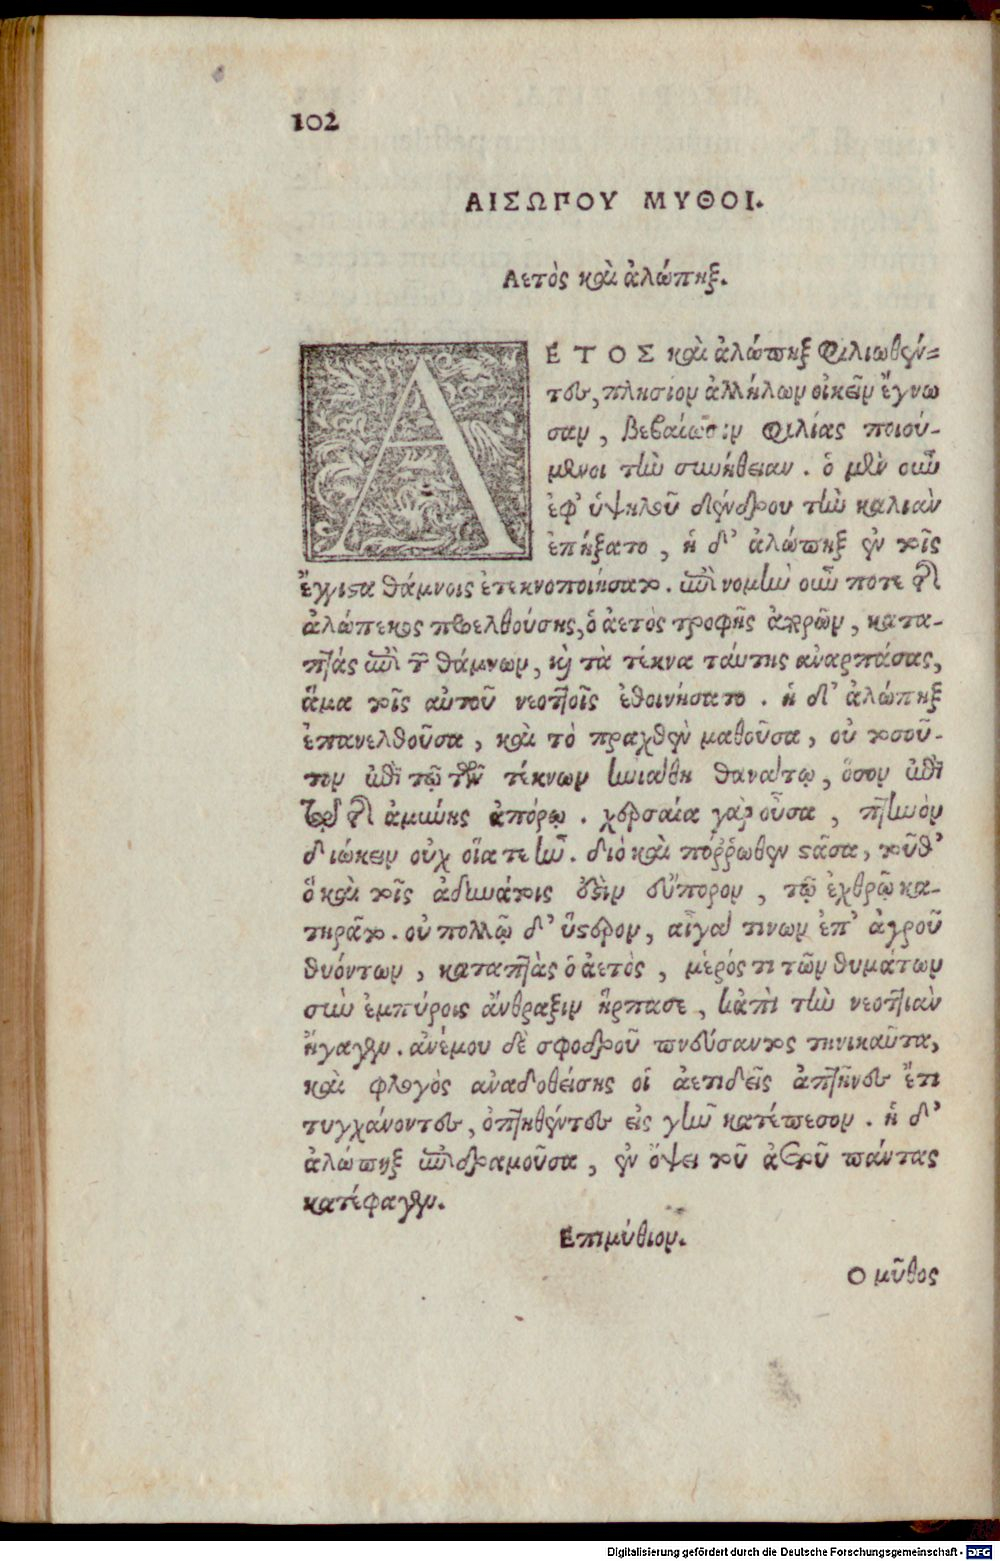 102
ΑΙΣΩΠΟΥ ΜΥΘΟΙ.
Αετὸς καὶ ἀλώπηξ.
ΑΕΤΟΣ καὶ ἀλώπηξ φιλιωθέν-
τες, πλησίον ἀλλήλων οἰκεῖν ἔγνω
σαν, βεβαίωσιν φιλίας ποιού-
μενοι τὴν συνήθειαν. ὁ μὲν οὖν
ἐφ' ὑψηλοῦ δένδρου τὴν καλιὰν
ἐπήξατο, ἡ δ' ἀλώπηξ ἐν τοῖς
ἔγγιστα θάμνοις ἐτεκνοποιήσατο. ἐπὶ νομὴν οὖν ποτε τῆς
ἀλώπεκος προελθούσης, ὁ ἀετὸς τροφῆς ἀπορῶν, κατα-
πτὰς ἐπὶ τῶν θάμνων, καὶ τὰ τέκνα ταύτης ἀναρπάσας,
ἅμα τοῖς αὐτοῦ νεοττοῖς ἐθοινήσατο. ἡ δ' ἀλώπηξ
ἐπανελθοῦσα, καὶ τὸ πραχθὲν μαθοῦσα, οὐ τοσοῦ-
τον ἐπὶ τῷ τῶν τέκνων ἠνιάθη θανάτῳ, ὅσον ἐπὶ
τῷ τῆς ἀμύνης ἀπόρῳ. χερσαία γὰρ οὖσα, πτηνὸν
διώκειν οὐχ οἵα τε ἦν. διὸ καὶ πόῤῥωθεν στᾶσα, τοῦθ'
ὃ καὶ τοῖς ἀδυνάτοις ἐστὶν εὔπορον, τῷ ἐχθρῷ κα-
τηρᾶτο. οὐ πολλῷ δ' ὕστερον, αἶγά τινων ἐπ' ἀγροῦ
θυόντων, καταπτὰς ὁ ἀετὸς, μέρός τι τῶν θυμάτων
σὺν ἐμπύροις ἄνθραξιν ἥρπασε, κἀπὶ τὴν νεοττιὰν
ἤγαγεν. ἀνέμου δὲ σφοδροῦ πνεύσαντος τηνικαῦτα,
καὶ φλογὸς ἀναδοθείσης οἱ ἀετιδεῖς ἀπτῆνες ἔτι
τυγχάνοντες, ὀπτηθέντες εἰς γῆν κατέπεσον. ἡ δ'
ἀλώπηξ ἐπιδραμοῦσα, ἐν ὄψει τοῦ ἀετοῦ πάντας
κατέφαγεν.
Επιμύθιον.
Ο μῦθος
Digitalisierung gefördert durch die Deutsche Forschungsgemeinschaft - DFG